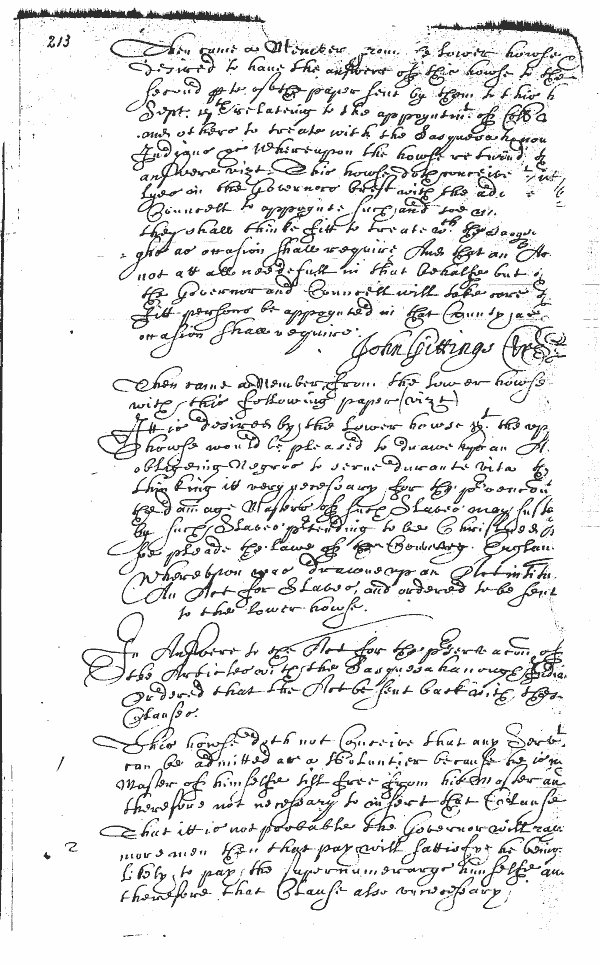 213
Then came a Member from the Lower howse
desired to have the answere of this howse to the
second pte of the paper sent by them to this h
Sept. 17th relateing to the appoyntmt of
and others to treate with the Sasquesahanou
Indians &c Whereupon the howse returnd
answere vizt. This howse doth conceive
lyes in the Governors brest with the ad
Councell to appoynte such and
they shall thinke fitt to treate wth the Sasqu
as occasion shall require And that an Ac
not att all needefull in that behalfe but
the Governor and Councell will take care
Fitt persons be appoynted in that County
occasion shall require.
John Gittings
Then came a Member from the Lower howse
with this following paper (vizt)
Itt is desired by the Lower howse yt the vp
howse would be pleased to drawe vp an A
obligeing Negros to serve durante vita they
thinking itt very necessary for the prevencon
the damage Masters of such Slaves may susta
by such Slaves ptending to be Christned
pleade the lawe of England
Wherevpon was drawne vp an Act intitu
An Act for Slaves, and ordered to be sent
to the lower howse.
In Answere to the Act for the pservacon of
the Articles with the Sasquesahanough India
Ordered that the Act be sent back with these
Clauses.
This howse doth not Conceive that any Servt
1 can be admitted as a Voluntier because he is no
Master of himselfe till free from his Master and
therefore not necessary to insert that Clause
That itt is not probable the Governor will rais
2 more men then that pay will sattisfye he being
likely to pay the supernumerarys himselfe an
therefore that Clause also vnnecessary